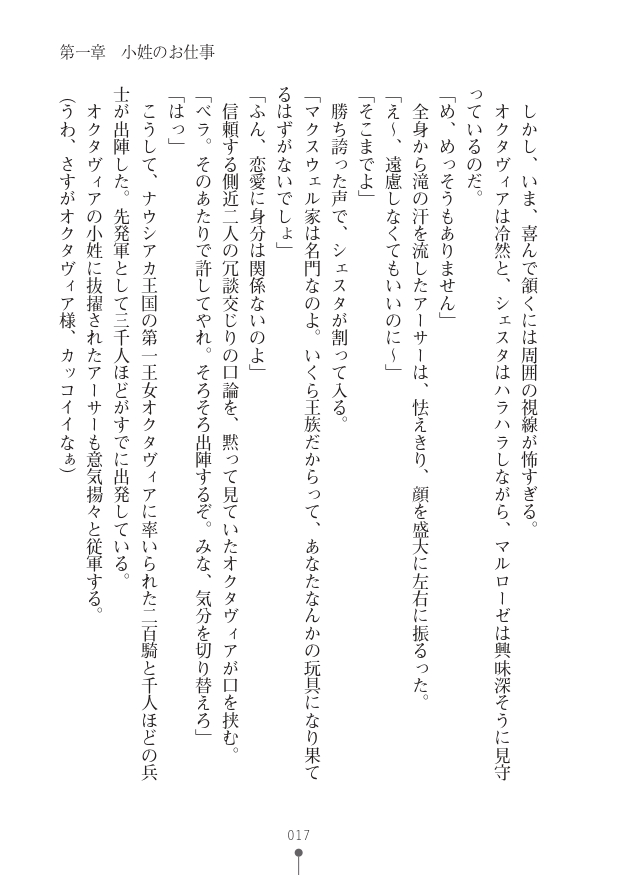 第一章　小姓のお仕事
しかし、いま、喜んで頷くには周囲の視線が怖すぎる。
オクタヴィアは冷然と、シェスタはハラハラしながら、マルローゼは興味深そうに見守
っているのだ。
「め、めっそうもありません」
全身から滝の汗を流したアーサーは、怯えきり、顔を盛大に左右に振るった。
「え～、遠慮しなくてもいいのに～」
「そこまでよ」
勝ち誇った声で、シェスタが割って入る。
「マクスウェル家は名門なのよ。いくら王族だからって、あなたなんかの玩具になり果て
るはずがないでしょ」
「ふん、恋愛に身分は関係ないのよ」
信頼する側近二人の冗談交じりの口論を、黙って見ていたオクタヴィアが口を挟む。
「ベラ。そのあたりで許してやれ。そろそろ出陣するぞ。みな、気分を切り替えろ」
「はっ」
こうして、ナウシアカ王国の第一王女オクタヴィアに率いられた二百騎と千人ほどの兵
士が出陣した。先発軍として三千人ほどがすでに出発している。
オクタヴィアの小姓に抜擢されたアーサーも意気揚々と従軍する。
（うわ、さすがオクタヴィア様、カッコイイなぁ）
017